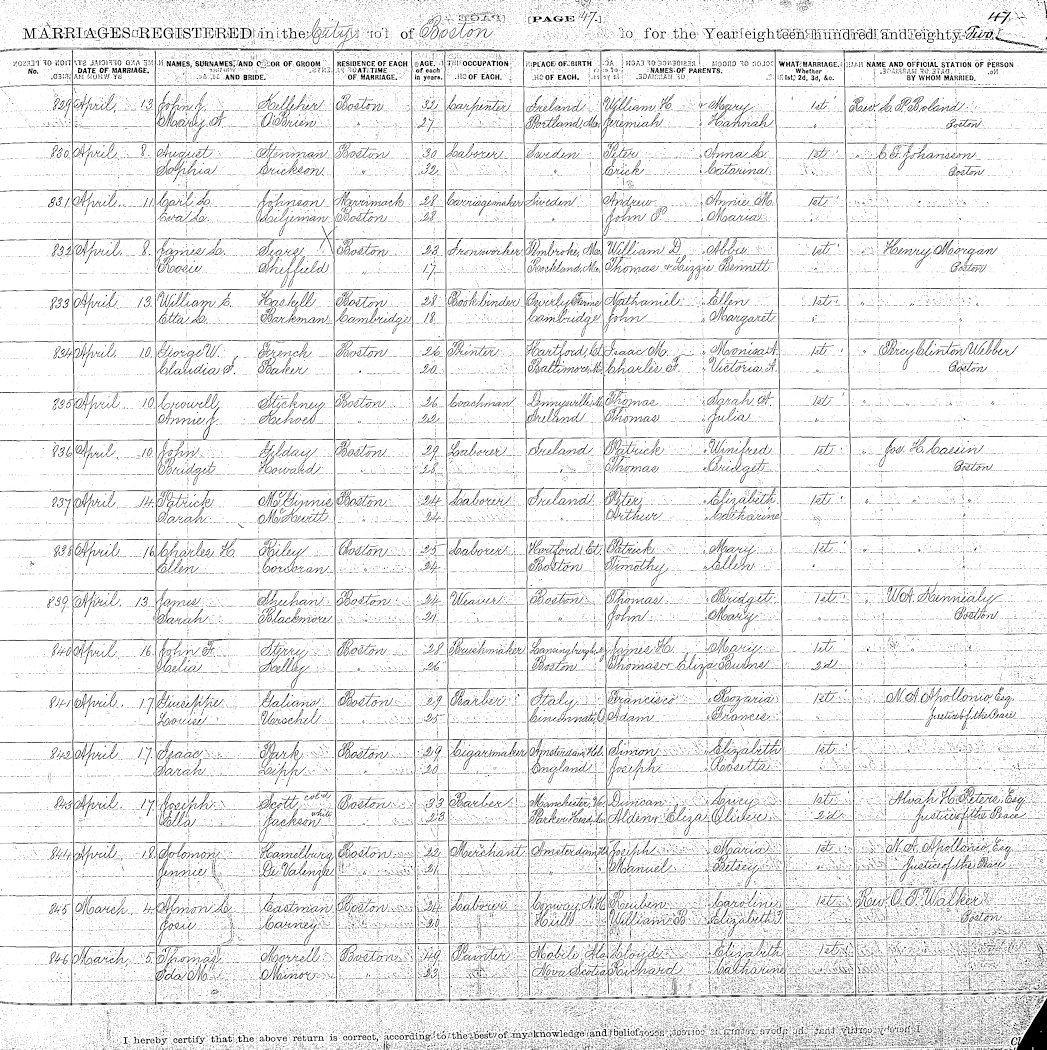 [PAGE 47.] 47.
MARRIAGES REGISTERED in the City of Boston for the Year eighteen hundred and eighty Two.
No. DATE OF MARRIAGE. NAMES, SURNAMES, AND COLOR OF GROOM AND BRIDE. RESIDENCE OF EACH AT TIME OF MARRIAGE. AGE, of each in years. OCCUPATION OF EACH. PLACE OF BIRTH OF EACH. NAMES OF PARENTS. WHAT MARRIAGE. Whether 1st, 2d, 3d, &c. NAME AND OFFICIAL STATION OF PERSON BY WHOM MARRIED.
829 April 13 John J. Kelleher Boston 32 Carpenter Ireland William H. & Mary 1st Rev.
Mary A. O'Brien " 27 Portland, Me. Jeremiah " Hannah " Boston
830 April 8 August Stenman Boston 30 Laborer Sweden Peter " Anna L. 1st " Johansson
Sophia Erickson " 32 " Erick " Catarina " Boston
831 April 11 Carl L. Johnson Merrimack 28 Carriagemaker Sweden Andrew " Annie M. 1st " "
Eva L. Boston 28 " John P. " Maria "
832 April 8 James L. Sears Boston 23 Ironworker Pembroke, Ma. William D. " Abbie 1st " Henry Morgan
Rosie Sheffield " 17 Rockland, Ma. Thomas & Lizzie Bennett " Boston
833 April 13 William E. Haskell Boston 28 Bookbinder Beverly Farms Nathaniel " Ellen 1st " "
Etta L. Barkman Cambridge 18 Cambridge John " Margaret "
834 April 10 George W. French Boston 26 Printer Hartford, Ct. Isaac M. " 1st " Percy Clinton Webber
Claudia F. Baker " 20 Baltimore, Charles F. " Victoria A. " Boston
835 April 10 Crowell Stickney Boston 26 Coachman Thomas " Sarah A. 1st " "
Annie J. " 22 Ireland Thomas " Julia "
836 April 10 John Gilday Boston 29 Laborer Ireland Patrick " Winifred 1st " Jos. H.
Bridget Howard " 28 " Thomas " Bridget " Boston
837 April 14 Patrick McGinnis Boston 24 Laborer Ireland Peter " Elizabeth 1st " "
Sarah " 24 " Arthur " Catharine "
838 April 16 Charles H. Riley Boston 25 Laborer Hartford Ct. Patrick " Mary 1st " "
Ellen Corcoran " 24 Boston Timothy " Ellen "
839 April 13 James Sheehan Boston 24 Weaver Boston Thomas " Bridget 1st " W. A. Kennealy
Sarah Blackmore " 21 " John " Mary " Boston
840 April 16 John F. Boston 28 Brushmaker James H. " Mary 1st " "
Kelley " 26 Boston Thomas & Eliza Burns 2d
841 April 17 Giuseppe Galiano Boston 29 Barber Italy Francisco " Rozaria 1st N. A. Apollonio, Esq.
Louise Verschel " 25 Cincinnati, O. Adam " Frances " Justice of the Peace
842 April 17 Isaac Park Boston 29 Cigarmaker Amsterdam, Hol. Simon " Elizabeth 1st " "
Sarah Lipp " 20 England Joseph " Rosetta "
843 April 17 Joseph Scott col'd Boston 33 Barber Manchester, Va. Duncan " Lucy 1st Alvah H. Peters, Esq.
Ella Jackson white " 23 Alden & Eliza Oliver 2d Justice of the Peace
844 April 18 Solomon Hamelburg Boston 22 Merchant Amsterdam, Joseph " Maria 1st N. A. Apollonio, Esq.
Jennie De Valenze " 21 " Manuel " Betsey " Justice of the Peace
845 March 4 Almon L. Eastman Boston 24 Laborer Conway, N.H. Reuben " Caroline 1st Rev. O. T. Walker
Josie Carney " 20 Hull William B. " Elizabeth T. " Boston
846 March 5 Thomas Morrell Boston 49 Painter Mobile, Ala. Lloyd " Elizabeth 1st " "
Ida M. Minor " 23 Nova Scotia Richard " Catharine "
I hereby certify that the above return is correct, according to the best of my knowledge and belief.